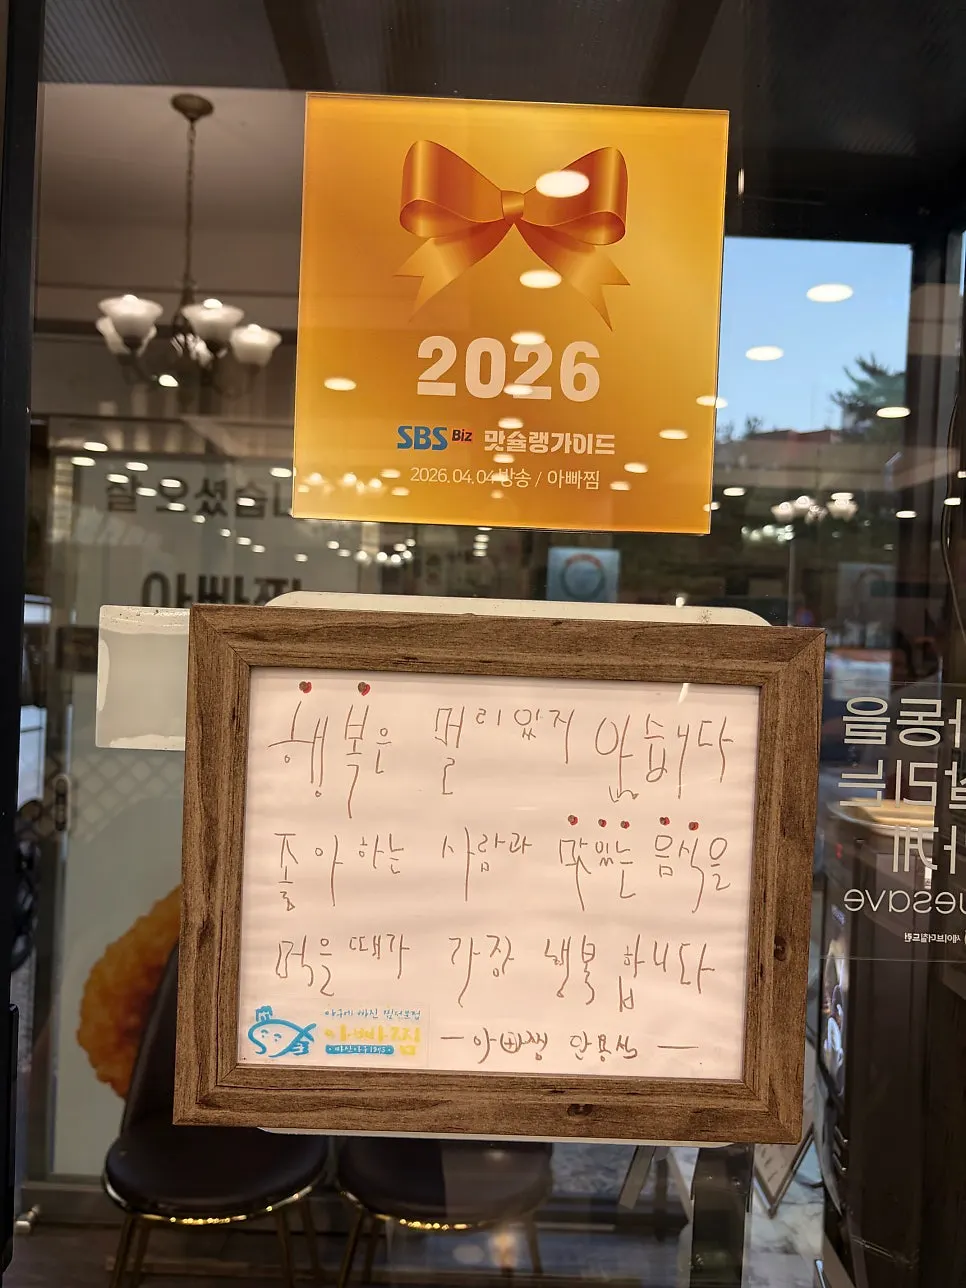 2026
SBS Biz 맛슐랭가이드
2026.04.04 방송 / 아빠찜
아빠찜
행복은 멀리있지 않습니다
좋아하는 사람과 맛있는 음식을
먹을때가 가장 행복합니다
아구에 빠진 찜전문점
아빠찜